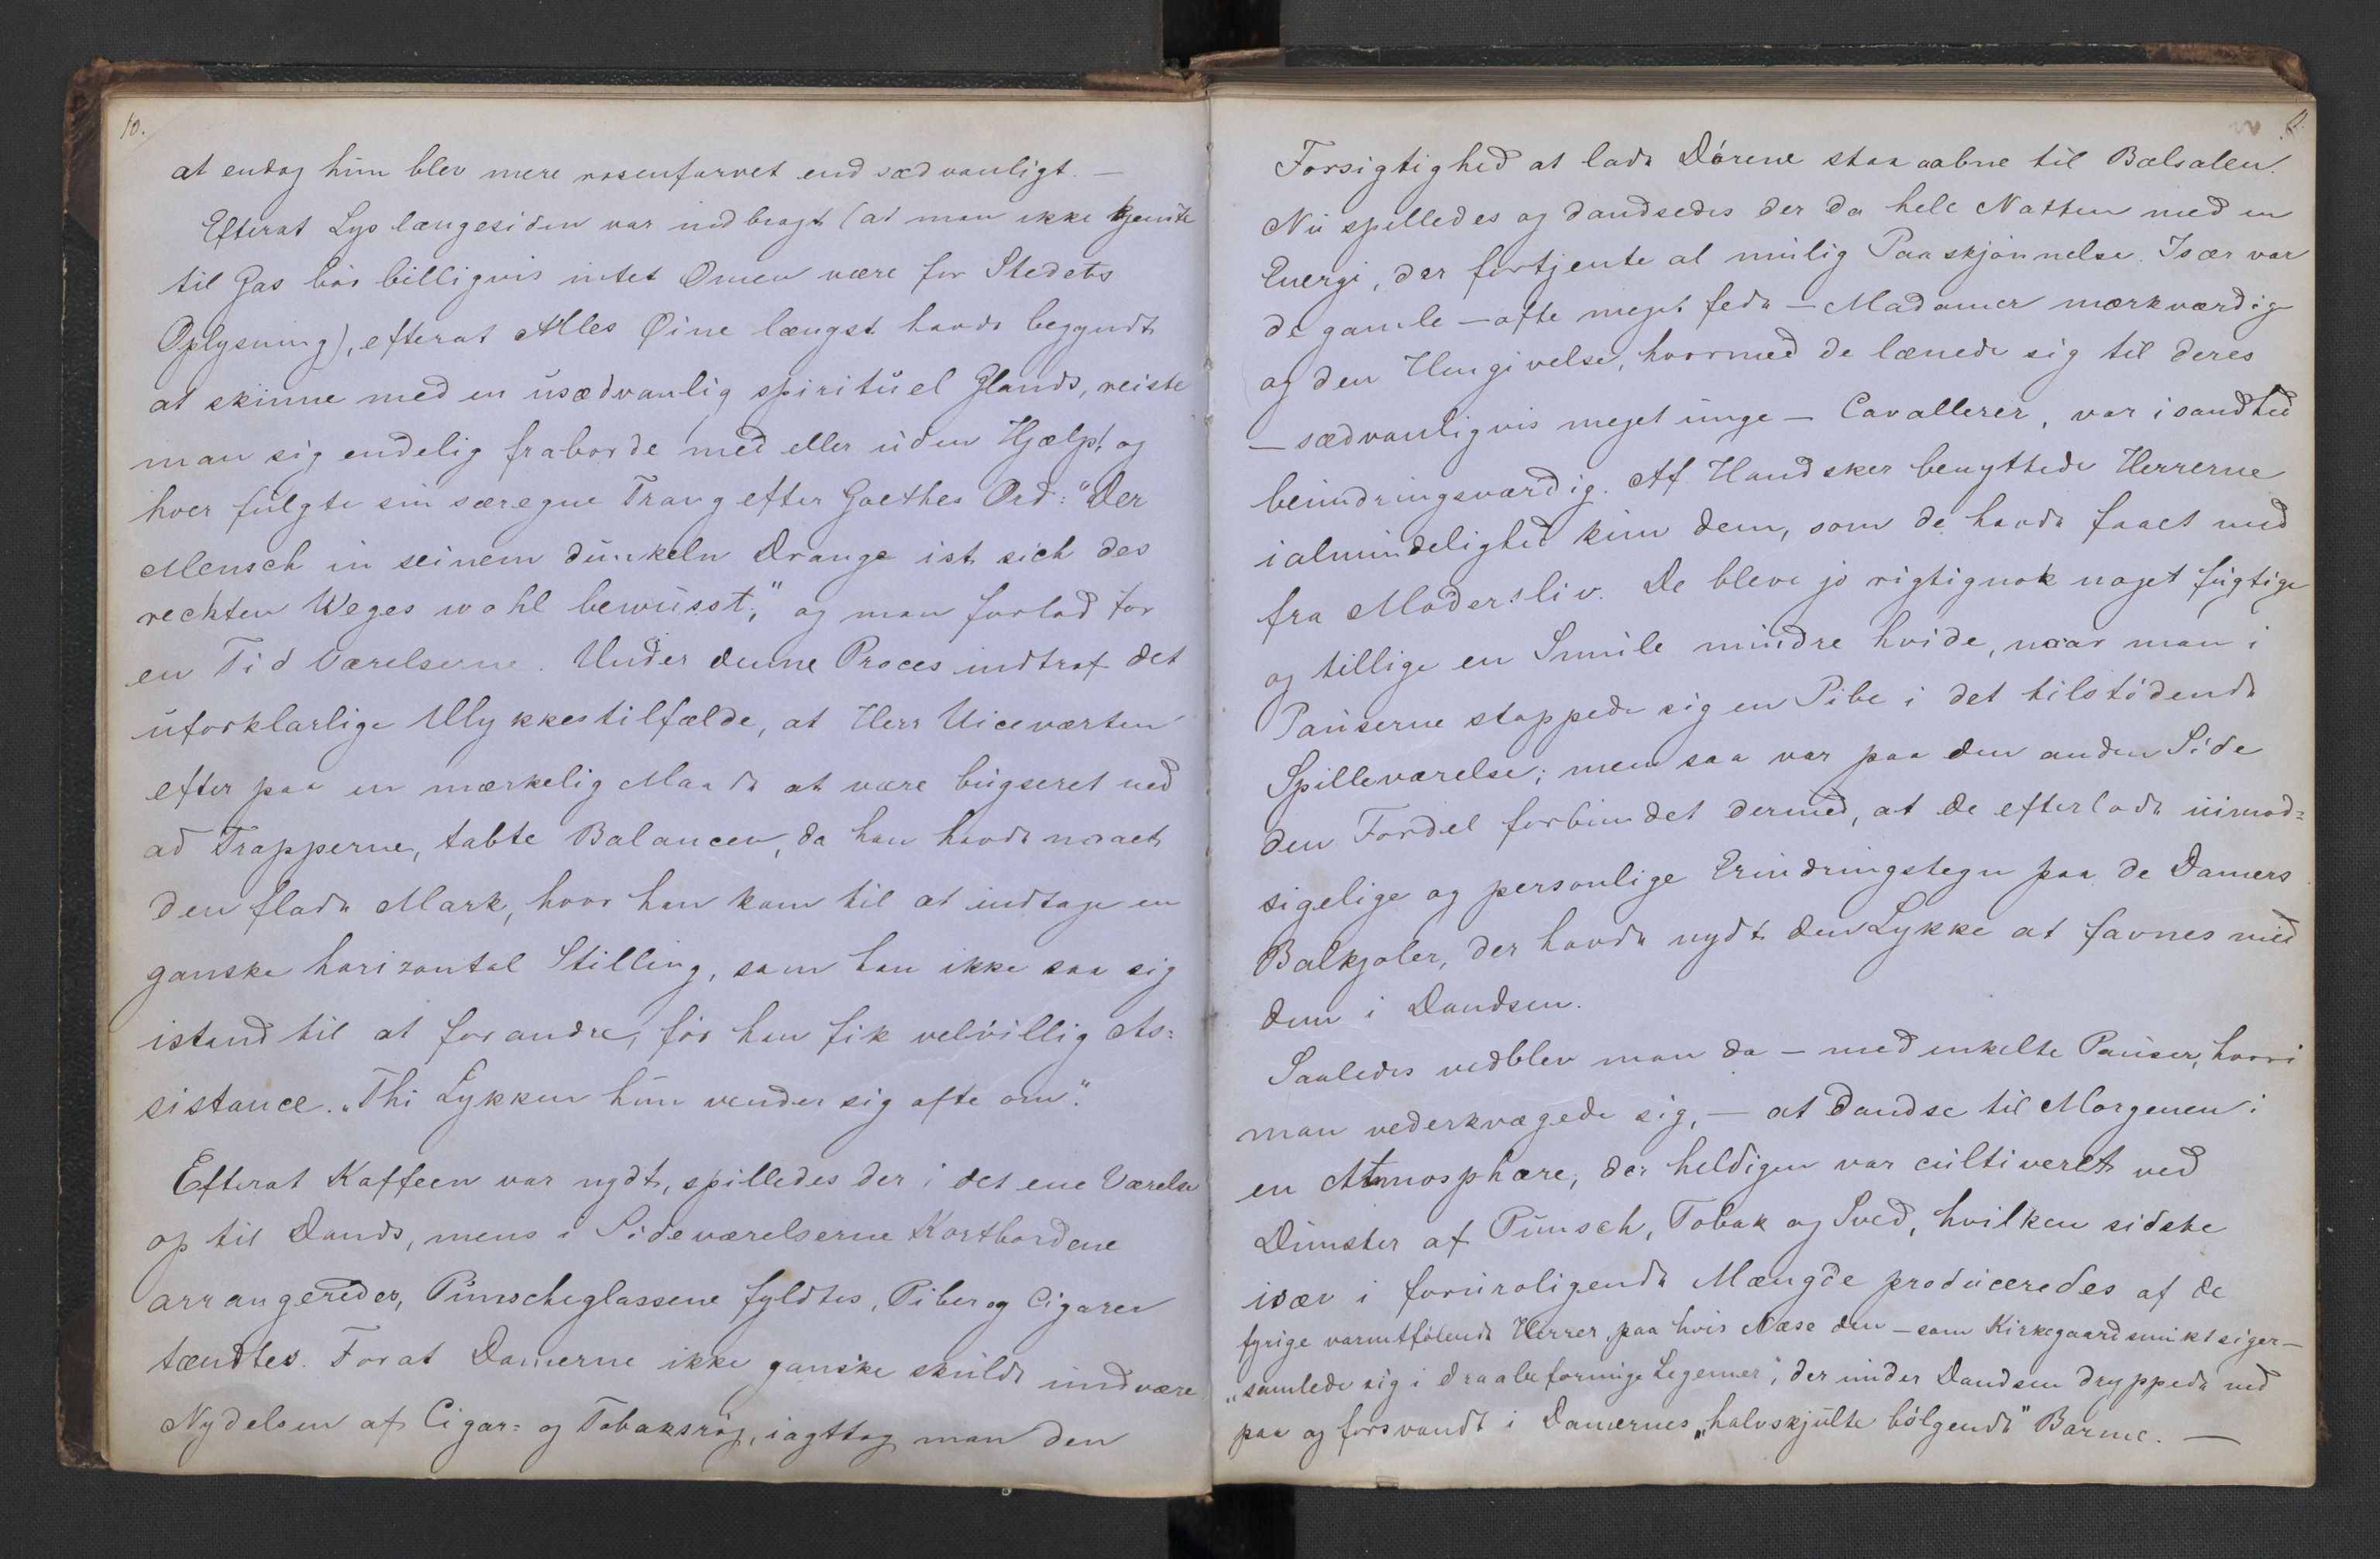 10.
at endog hun blev mere rosenfarvet end sædvanligt. —
Efterat Lys længesiden var indbragt (at man ikke kjendte
til Gas bør billigvis intet Omen være for Stedets
Oplysning), efterat Alles Øine længst havde begyndt
at skinne med en usædvanlig spirituel Glands, reiste
man sig endelig fraborde med eller uden Hjælp, og
hver fulgte sin særegne Trang efter Goethes Ord: "Der
Mensch in seinem dunkeln Drange ist sich des
rechten Weges wohl bewusst," og man forlod for
en Tid Værelserne. Under denne Proces indtraf det
uforklarlige Ulykkestilfælde, at Herr Viceværten
efter paa en mærkelig Maade at være bugseret ned
ad Trapperne, tabte Balancen, da han havde naaet
den flade Mark, hvor han kom til at indtage en
ganske horizontal Stilling, som han ikke saa sig
istand til at forandre, før han fik velvillig As=
sistance. „Thi Lykken hun vender sig ofte om".
Efterat Kaffeen var nydt, spilledes der i det ene Værelse
op til Dands, mens i Sideværelserne Kortbordene
arrangeredes, Punscheglassene fyldtes, Piber og Cigarer
tændtes. Forat Damerne ikke ganske skulde undvære
Nydelsen af Cigar= og Tobaksrøg, iagttog man den
Forsigtighed at lade Dørene staa aabne til Balsalen.
Nu spilledes og dandsedes der da hele Natten med en
Energi, der fortjente al mulig Paaskjønnelse. Især var
de gamle — ofte meget fede — Madamer mærkværdige
og den Hengivelse, hvormed de lænede sig til deres
— sædvanligvis meget unge — Cavallerer, var isandhed
beundringsværdig. Af Handsker benyttede Herrerne
ialmindelighed kun dem, som de havde faaet med
fra Modersliv. De bleve jo rigtignok noget fugtige
og tillige en Smule mindre hvide, naar man i
Pauserne stoppede sig en Pibe i det tilstødende
Spilleværelse; men saa var paa den anden Side
den Fordel forbundet dermed, at de efterlode uimod=
sigelige og personlige Erindringstegn paa de Damers
Balkjoler, der havde nydt den Lykke at favnes med
dem i Dandsen.
Saaledes vedblev man da — med enkelte Pauser, hvori
man vederkvægede sig, — at dandse til Morgenen i
en Atmosphære, der heldigen var cultiveret ved
Dunster af Punsch, Tobak og Sved, hvilken sidste
især i foruroligende Mængde produceredes af de
fyrige varmtfølende Herrer, paa hvis Næse den — som Kirkegaard smukt siger —
„samlede sig i draabeformige Legemer", der under Dandsen dryppede ned
paa og forsvandt i Damernes „halvskjulte bølgende" Barme. —